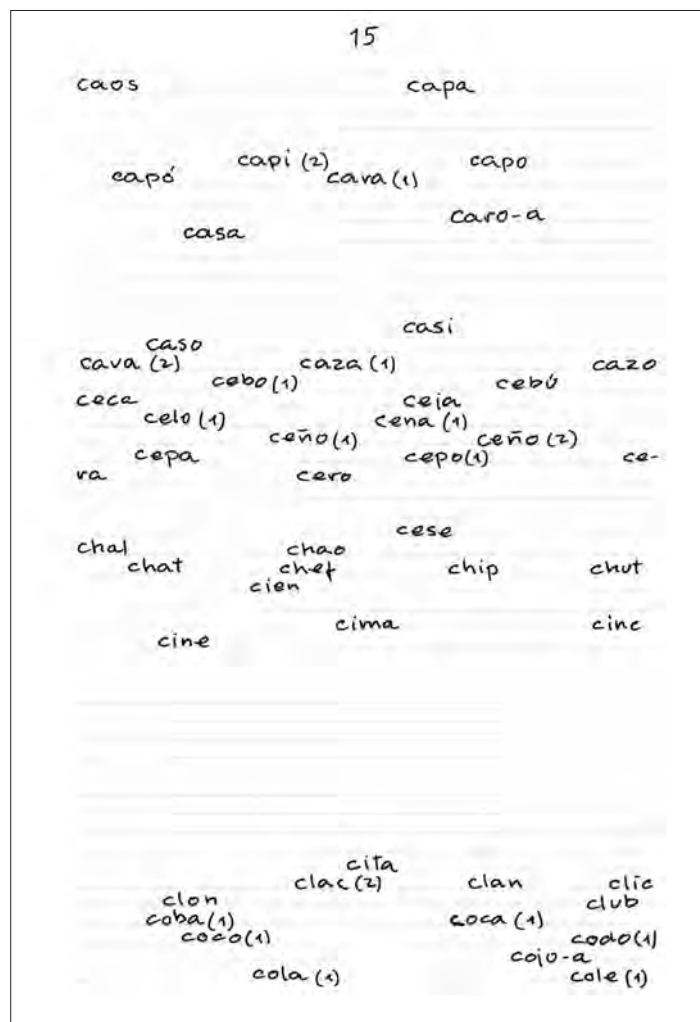 15
caos capa
capi (2) capo
capó cara (1)
caro-a
casa
casi
caso
cava (2) caza (1) cazo
cebo (1) cebú
ceca ceja
celo (1) cena (1)
ceño (1) ceño (2)
cepa cepo (1) ce-
ra cero
cese
chal chao
chat chef chip chut
cien
cima cinc
cine
cita
clac (2) clan clic
clon club
coba (1) coca (1)
coco (1) codo (1)
cojo-a
cola (1) cole (1)